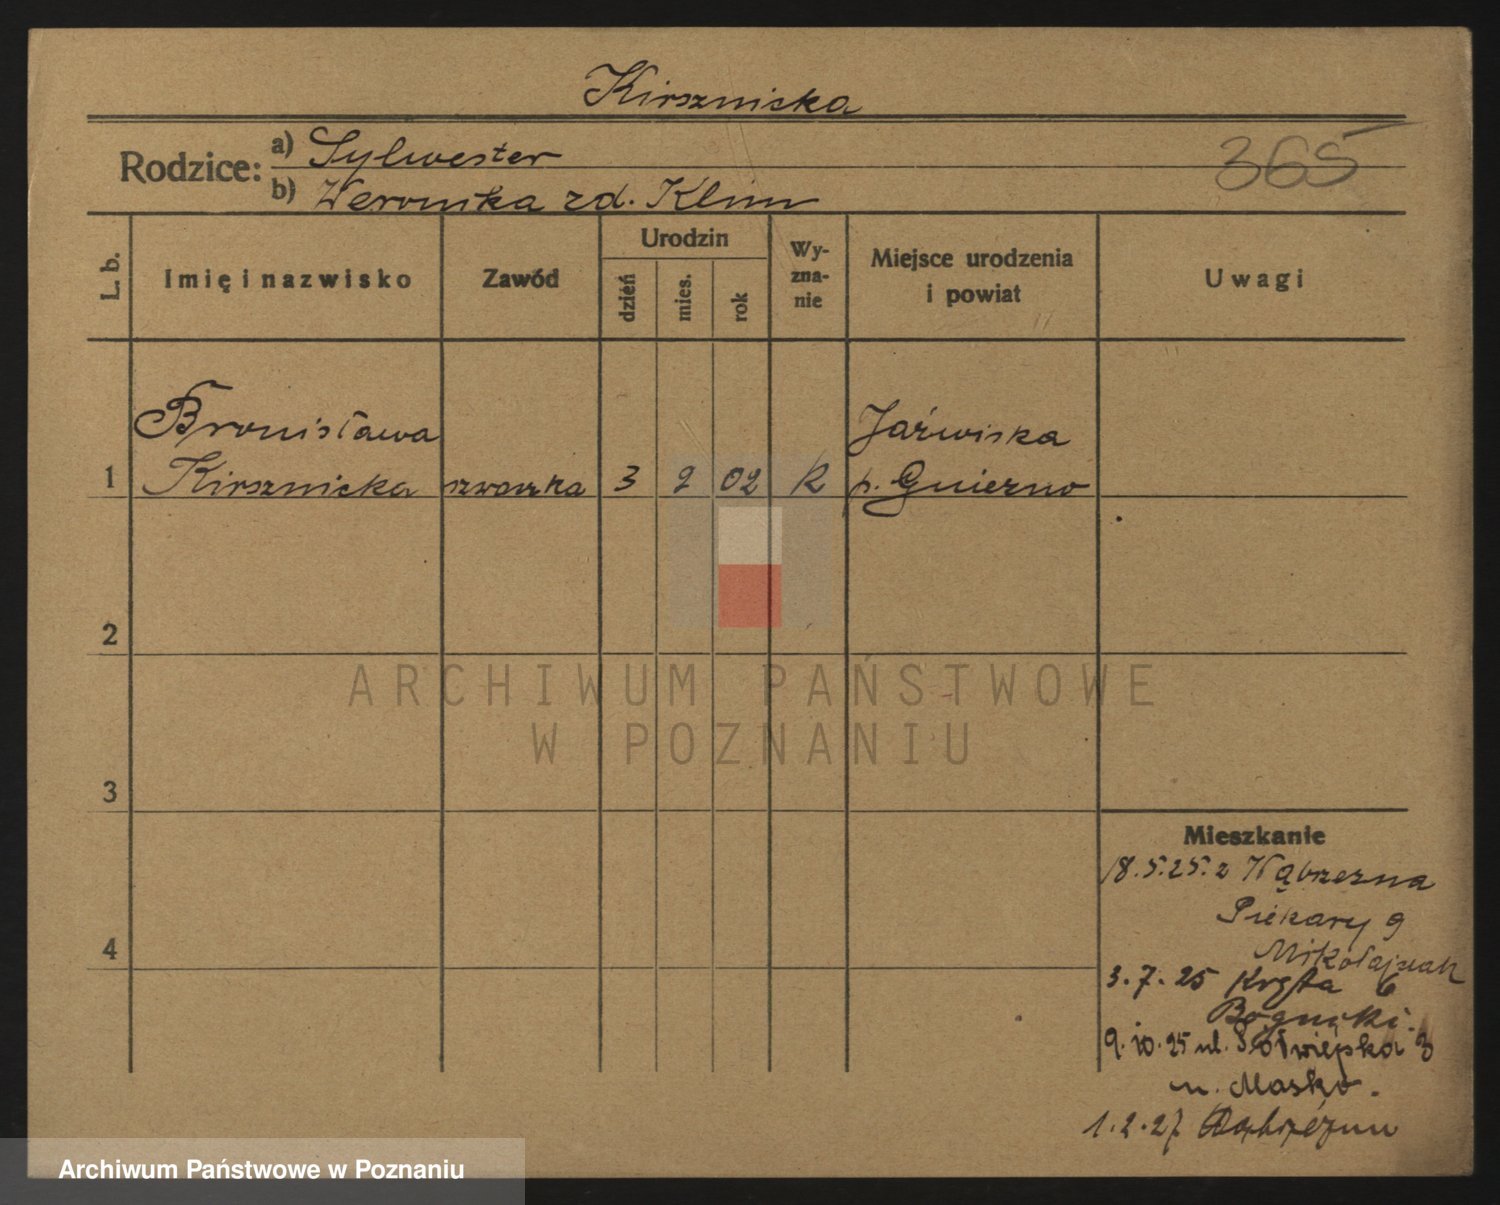 Kirsznicka
Rodzice: a) Sylwester
365
b) Weronika zd. Klim
L. b.
Imię i nazwisko
Zawód
Urodzin
dzień
mies.
rok
Wy-
zna-
nie
Miejsce urodzenia
i powiat
Uwagi
Bronisława
Jaźwiska
1 Kirsznicka szwaczka 3 2 02 K p. Gniezno
2
ARCHIWUM PAŃSTWOWE
W POZNANIU
3
Mieszkanie
18.5.25. z Wąbrzezna
Piekary 9
4
Mikołajczak
3.7.25 Kręta 6
9.10.25 ul. Półwiejska 3
u. Masko.
1.2.27
Archiwum Państwowe w Poznaniu